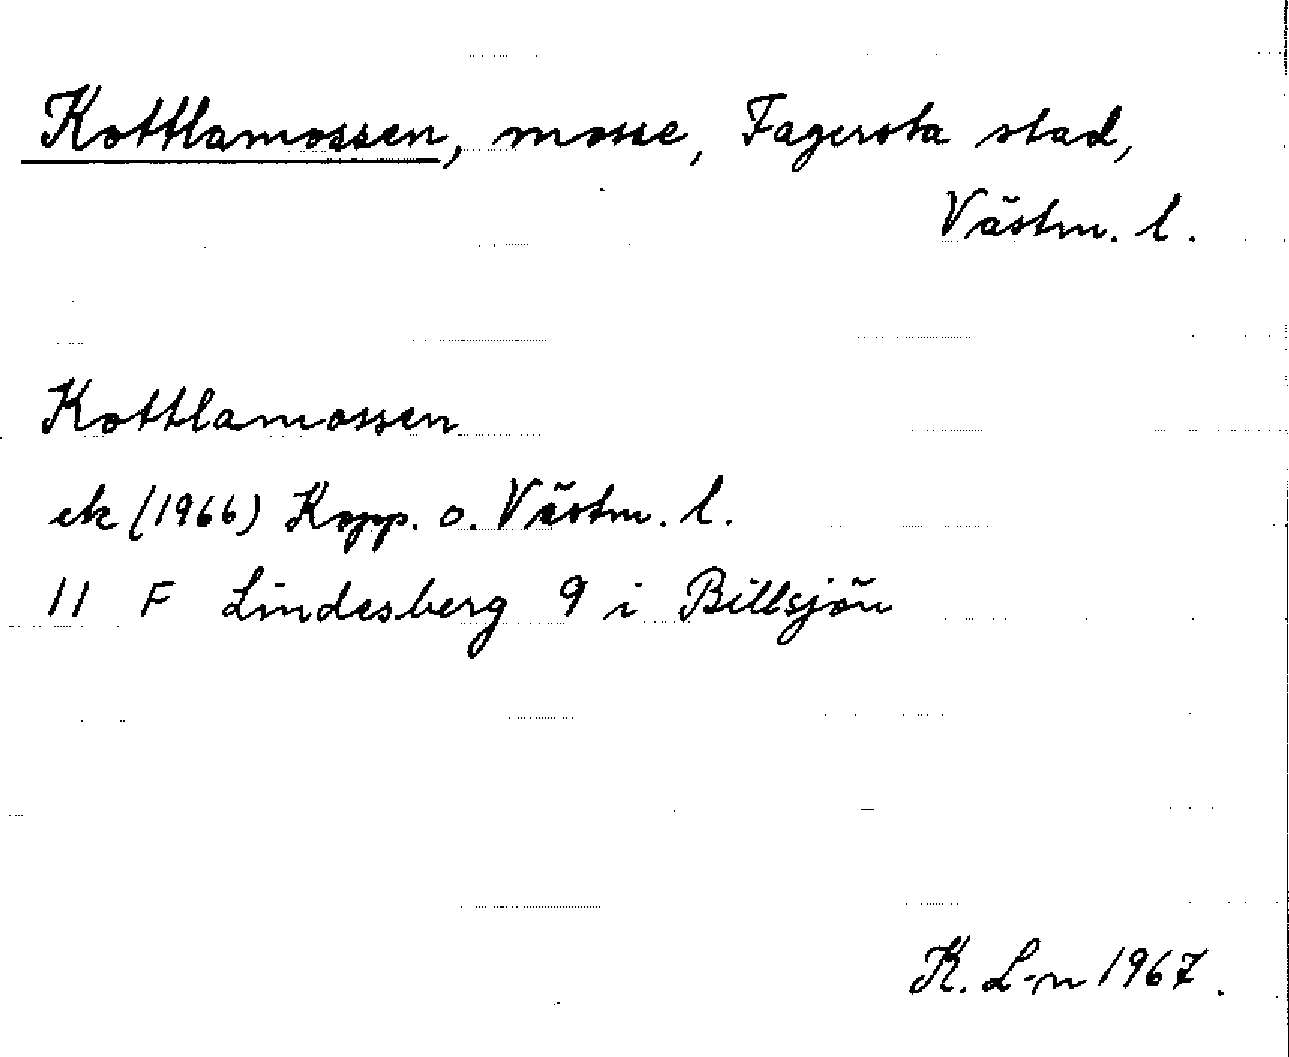 Kottlamossen, mosse, Fagersta stad,
Västm. l.
Kottlamossen
ek (1966) Kopp. o. Västm. l.
11 F Lindesberg 9 i Billsjön
K. L-n 1967.